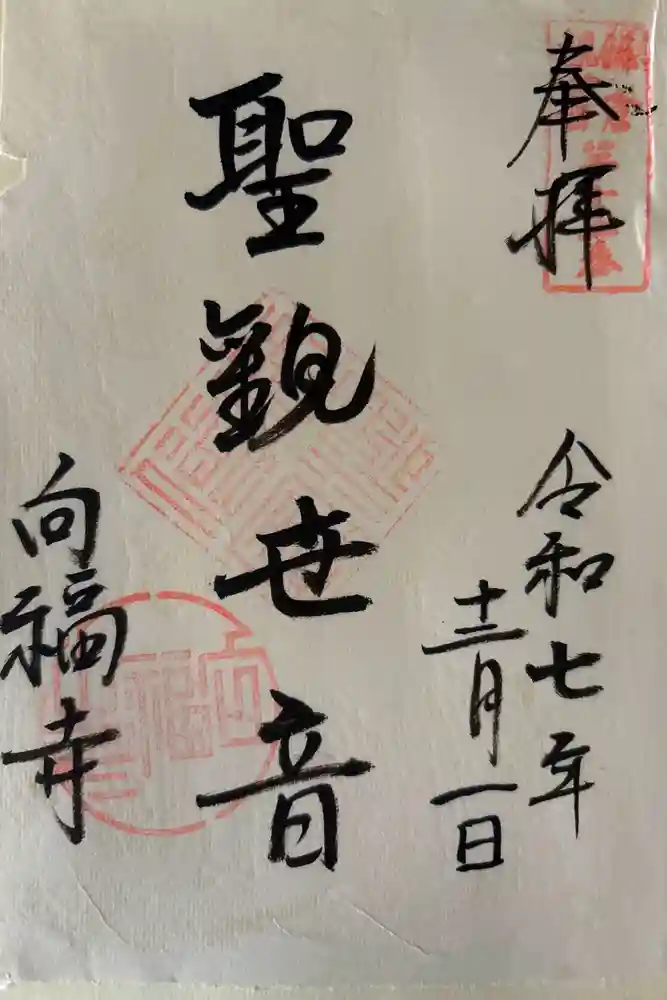 奉拝
令和七年
十二月一日
聖觀世音
向福寺